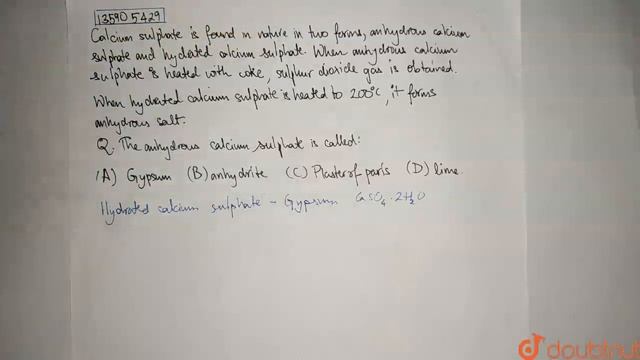 135905429
Calcium sulphate is found in nature in two forms, anhydrous calcium
sulphate and hydrated calcium sulphate. When anhydrous calcium
sulphate is heated with coke, sulphur dioxide gas is obtained.
When hydrated calcium sulphate is heated to 200°C, it forms
anhydrous salt.
Q. The anhydrous calcium sulphate is called:
(A) Gypsum (B) anhydrite (C) Plaster of paris (D) lime.
Hydrated calcium sulphate - Gypsum CaSO₄.2H₂O
doubtnut